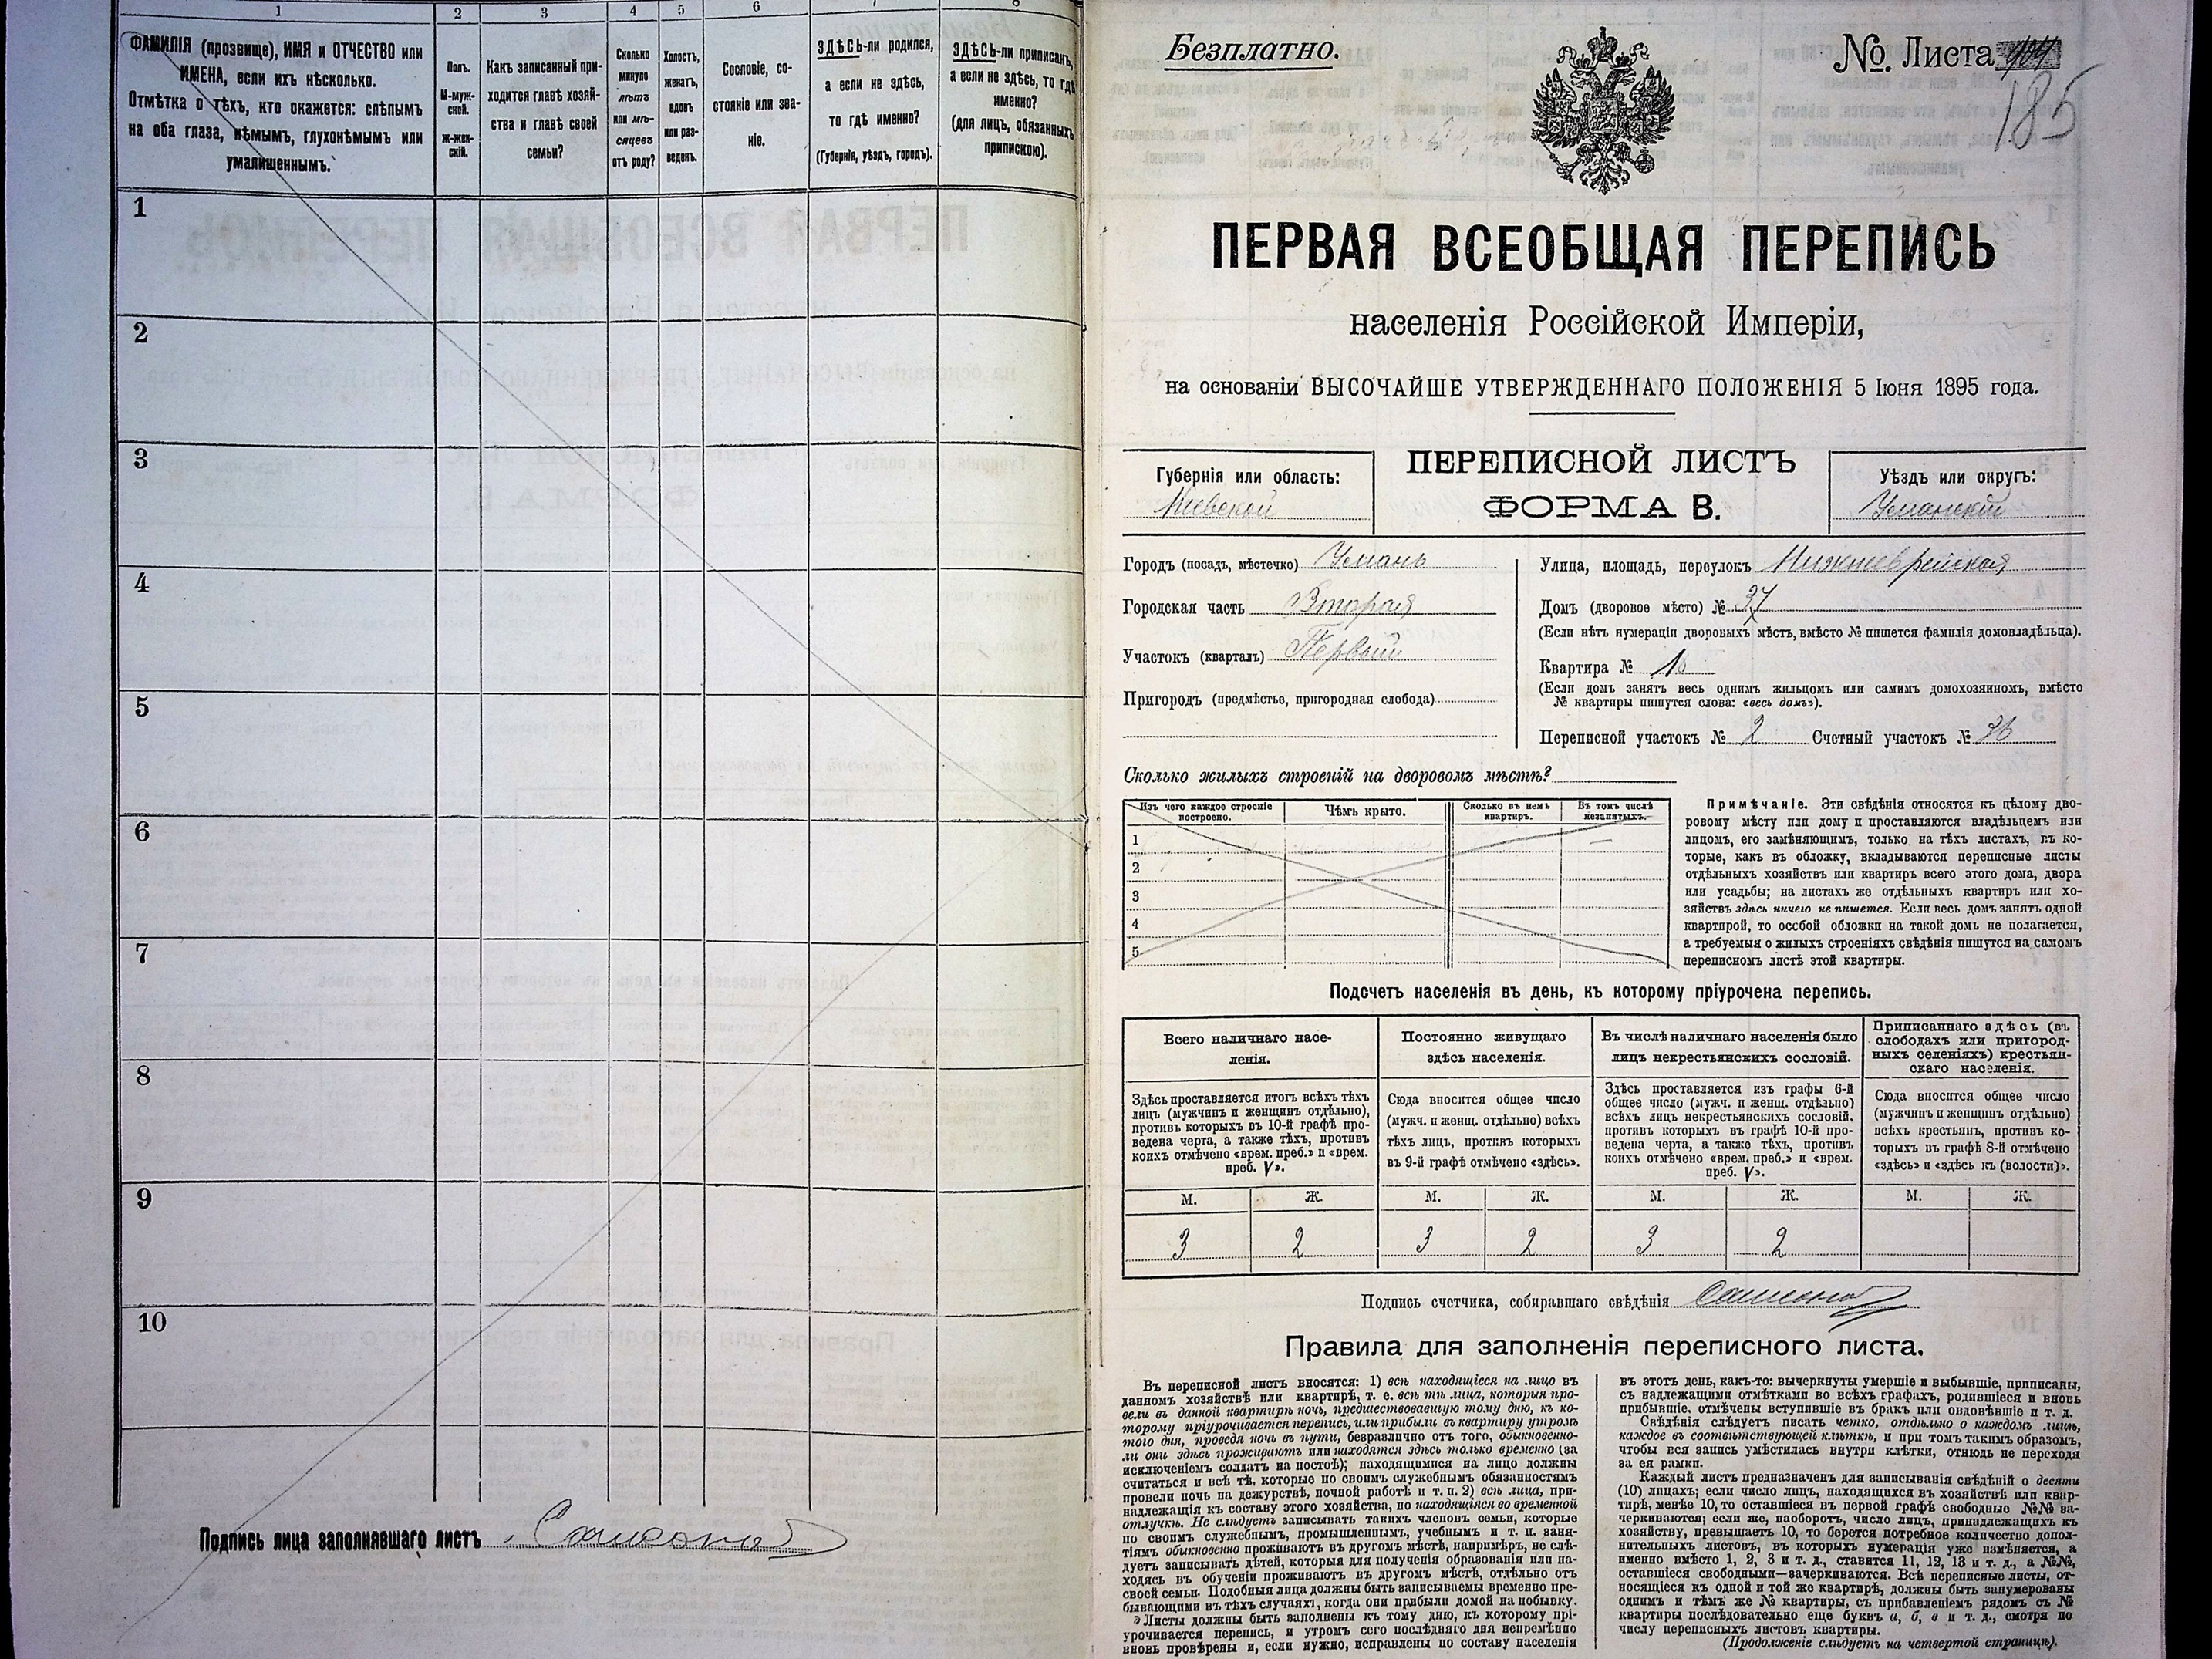 1 2 3 4 5 6 7 8
ФАМИЛІЯ (прозвище), ИМЯ и ОТЧЕСТВО или
ИМЕНА, если ихъ нѣсколько.
Отмѣтка о тѣхъ, кто окажется: слѣпымъ
на оба глаза, нѣмымъ, глухонѣмымъ или
умалишеннымъ.
Полъ.
М-муж-
ской.
Ж-жен-
скій.
Какъ записанный при-
ходится главѣ хозяй-
ства и главѣ своей
семьи?
Сколько
минуло
лѣтъ
или мѣ-
сяцевъ
отъ роду?
Холостъ,
женатъ,
вдовъ
или раз-
веденъ.
Сословіе, со-
стояніе или зва-
ніе.
ЗДѢСЬ-ли родился,
а если не здѣсь,
то гдѣ именно?
(Губернія, уѣздъ, городъ).
ЗДѢСЬ-ли приписанъ,
а если не здѣсь, то гдѣ
именно?
(для лицъ, обязанныхъ
припискою).
1
2
3
4
5
6
7
8
9
10
Подпись лица заполнявшаго листъ
Безплатно.
№. Листа
185
ПЕРВАЯ ВСЕОБЩАЯ ПЕРЕПИСЬ
населенія Россійской Имперіи,
на основаніи ВЫСОЧАЙШЕ УТВЕРЖДЕННАГО ПОЛОЖЕНІЯ 5 Іюня 1895 года.
Губернія или область:
Кіевской
ПЕРЕПИСНОЙ ЛИСТЪ
ФОРМА В.
Уѣздъ или округъ:
Уманскій
Городъ (посадъ, мѣстечко) Умань
Городская часть Вторая
Участокъ (кварталъ) Первый
Пригородъ (предмѣстье, пригородная слобода)
Улица, площадь, переулокъ Нижнееврейская
Домъ (дворовое мѣсто) № 37
(Если нѣтъ нумераціи дворовыхъ мѣстъ, вмѣсто № пишется фамилія домовладѣльца).
Квартира №
(Если домъ занятъ весь однимъ жильцомъ или самимъ домохозяиномъ, вмѣсто
№ квартиры пишутся слова: «весь домъ»).
Переписной участокъ № 2 Счетный участокъ № 26
Сколько жилыхъ строеній на дворовомъ мѣстѣ?
Изъ чего каждое строеніе
построено.
Чѣмъ крыто.
Сколько въ немъ
квартиръ.
Въ томъ числѣ
незанятыхъ.
1
2
3
4
5
Примѣчаніе. Эти свѣдѣнія относятся къ цѣлому дво-
ровому мѣсту или дому и проставляются владѣльцемъ или
лицомъ, его замѣняющимъ, только на тѣхъ листахъ, въ ко-
торые, какъ въ обложку, вкладываются переписные листы
отдѣльныхъ хозяйствъ или квартиръ всего этого дома, двора
или усадьбы; на листахъ же отдѣльныхъ квартиръ или хо-
зяйствъ здѣсь ничего не пишется. Если весь домъ занятъ одной
квартирой, то особой обложки на такой домъ не полагается,
а требуемыя о жилыхъ строеніяхъ свѣдѣнія пишутся на самомъ
переписномъ листѣ этой квартиры.
Подсчетъ населенія въ день, къ которому пріурочена перепись.
Всего наличнаго насе-
ленія.
Постоянно живущаго
здѣсь населенія.
Въ числѣ наличнаго населенія было
лицъ некрестьянскихъ сословій.
Приписаннаго здѣсь (въ
слободахъ или пригород-
ныхъ селеніяхъ) крестьян-
скаго населенія.
Здѣсь проставляется итогъ всѣхъ тѣхъ
лицъ (мужчинъ и женщинъ отдѣльно),
противъ которыхъ въ 10-й графѣ про-
ведена черта, а также тѣхъ, противъ
коихъ отмѣчено «врем. преб.» и «врем.
преб. V».
Сюда вносится общее число
(мужч. и женщ. отдѣльно) всѣхъ
тѣхъ лицъ, противъ которыхъ
въ 9-й графѣ отмѣчено «здѣсь».
Здѣсь проставляется изъ графы 6-й
общее число (мужч. и женщ. отдѣльно)
всѣхъ лицъ некрестьянскихъ сословій,
противъ которыхъ въ графѣ 10-й про-
ведена черта, а также тѣхъ, противъ
коихъ отмѣчено «врем. преб.» и «врем.
преб. V».
Сюда вносится общее число
(мужчинъ и женщинъ отдѣльно)
всѣхъ крестьянъ, противъ ко-
торыхъ въ графѣ 8-й отмѣчено
«здѣсь» и «здѣсь къ (волости)».
М. Ж. М. Ж. М. Ж. М. Ж.
3 2 3 2 3 2
Подпись счетчика, собиравшаго свѣдѣнія
Правила для заполненія переписного листа.
Въ переписной листъ вносятся: 1) всѣ находящіеся на лицо въ
данномъ хозяйствѣ или квартирѣ, т. е. всѣ тѣ лица, которыя про-
вели въ данной квартирѣ ночь, предшествовавшую тому дню, къ ко-
торому пріурочивается перепись, или прибыли въ квартиру утромъ
того дня, проведя ночь въ пути, безразлично отъ того, обыкновенно-
ли они здѣсь проживаютъ или находятся здѣсь только временно (за
исключеніемъ солдатъ на постоѣ); находящимися на лицо должны
считаться и всѣ тѣ, которые по своимъ служебнымъ обязанностямъ
провели ночь на дежурствѣ, ночной работѣ и т. п. 2) всѣ лица, при-
надлежащія къ составу этого хозяйства, но находящіяся во временной
отлучкѣ. Не слѣдуетъ записывать такихъ членовъ семьи, которые
по своимъ служебнымъ, промышленнымъ, учебнымъ и т. п. заня-
тіямъ обыкновенно проживаютъ въ другомъ мѣстѣ, напримѣръ, не слѣ-
дуетъ записывать дѣтей, которыя для полученія образованія или на-
ходясь въ обученіи проживаютъ въ другомъ мѣстѣ, отдѣльно отъ
своей семьи. Подобныя лица должны быть записываемы временно пре-
бывающими въ тѣхъ случаяхъ, когда они прибыли домой на побывку.
Листы должны быть заполнены къ тому дню, къ которому прі-
урочивается перепись, и утромъ сего послѣдняго дня непремѣнно
вновь провѣрены и, если нужно, исправлены по составу населенія
въ этотъ день, какъ-то: вычеркнуты умершіе и выбывшіе, приписаны,
съ надлежащими отмѣтками во всѣхъ графахъ, родившіеся и вновь
прибывшіе, отмѣчены вступившіе въ бракъ или овдовѣвшіе и т. д.
Свѣдѣнія слѣдуетъ писать четко, отдѣльно о каждомъ лицѣ,
каждое въ соотвѣтствующей клѣткѣ, и при томъ такимъ образомъ,
чтобы вся запись умѣстилась внутри клѣтки, отнюдь не переходя
за ея рамки.
Каждый листъ предназначенъ для записыванія свѣдѣній о десяти
(10) лицахъ; если число лицъ, находящихся въ хозяйствѣ или квар-
тирѣ, менѣе 10, то оставшіеся въ первой графѣ свободные №№ за-
черкиваются; если же, наоборотъ, число лицъ, принадлежащихъ къ
хозяйству, превышаетъ 10, то берется потребное количество допол-
нительныхъ листовъ, въ которыхъ нумерація уже измѣняется, а
именно вмѣсто 1, 2, 3 и т. д., ставится 11, 12, 13 и т. д., а №№,
оставшіеся свободными—зачеркиваются. Всѣ переписные листы, от-
носящіеся къ одной и той же квартирѣ, должны быть занумерованы
однимъ и тѣмъ же № квартиры, съ прибавленіемъ рядомъ съ №
квартиры послѣдовательно еще буквъ а, б, в и т. д., смотря по
числу переписныхъ листовъ квартиры.
(Продолженіе слѣдуетъ на четвертой страницѣ).